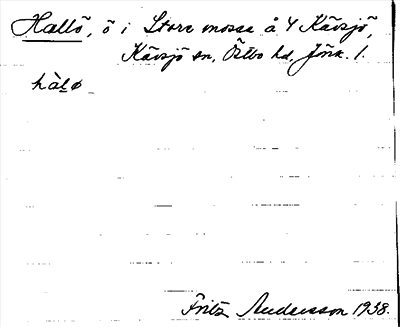 Hallö, ö i Store mosse å 4 Kävsjö,
Kävsjö sn, Östbo hd, Jönk. l.
hàlø
Fritz Andersson 1938.